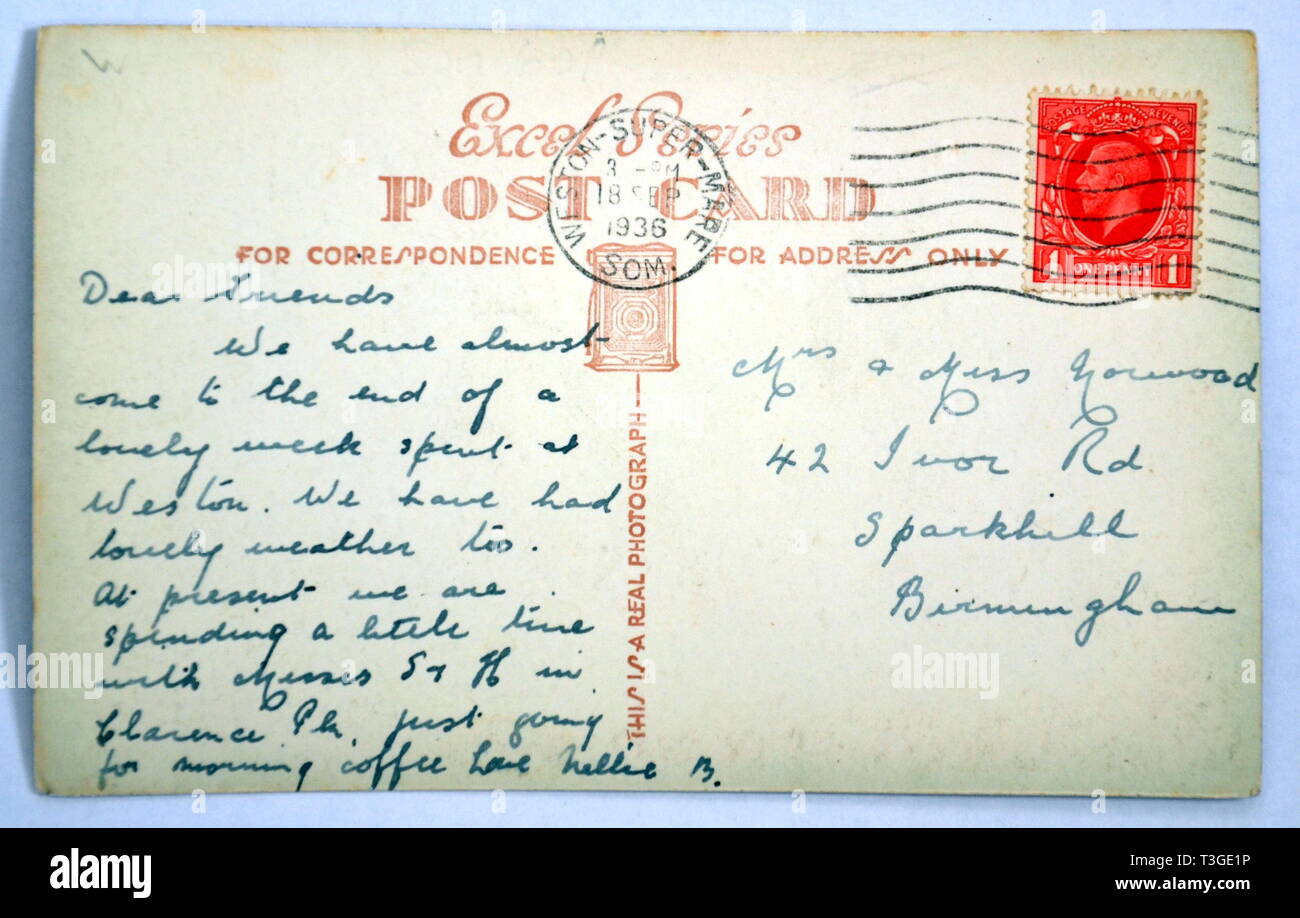 Excel Series
POST CARD
FOR CORRESPONDENCE
FOR ADDRESS ONLY
WESTON-SUPER-MARE
3 - PM
18 SEP
1936
SOM.
POSTAGE REVENUE
1 ONE PENNY 1
THIS IS A REAL PHOTOGRAPH
Dear Friends
We have almost
come to the end of a
lovely week spent at
Weston. We have had
lovely weather too.
At present we are
spending a little time
with Misses S & H in
Clarence Pk. just going
for morning coffee Love Nellie B.
Mrs & Miss Norwood
42 Ivor Rd
Sparkhill
Birmingham
alamy
Image ID: T3GE1P
www.alamy.com